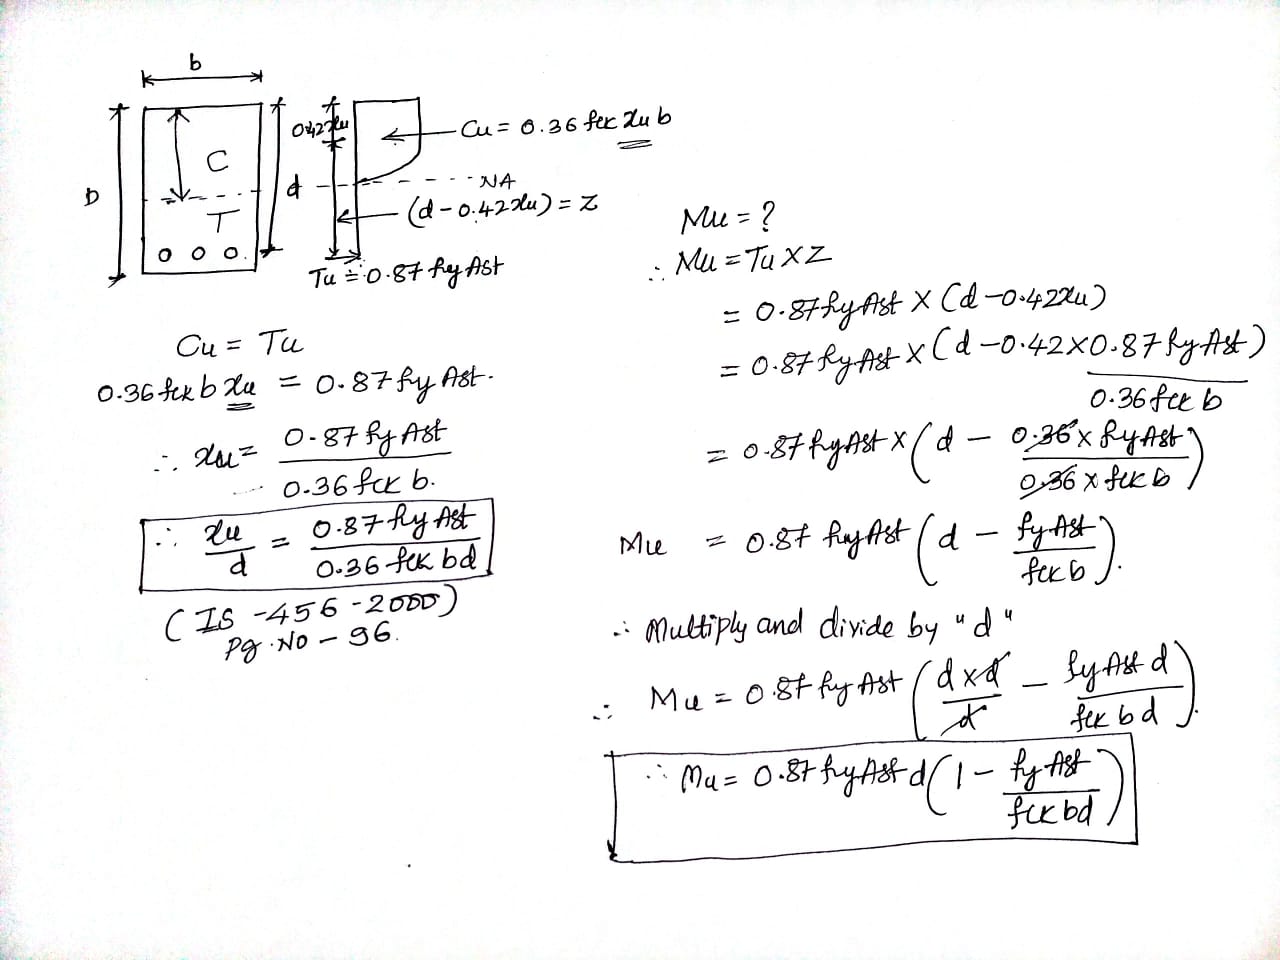 b
D
C
T
d
0.42xu
Cu = 0.36 fck xu b
NA
(d - 0.42xu) = Z
Tu = 0.87 fy Ast
Cu = Tu
0.36 fck b xu = 0.87 fy Ast.
∴ xu = 0.87 fy Ast / 0.36 fck b.
∴ xu/d = 0.87 fy Ast / 0.36 fck bd
(IS -456-2000)
Pg.No - 96.
Mu = ?
∴ Mu = Tu x Z
= 0.87 fy Ast x (d - 0.42xu)
= 0.87 fy Ast x (d - 0.42 x 0.87 fy Ast / 0.36 fck b)
= 0.87 fy Ast x (d - 0.36 x fy Ast / 0.36 x fck b)
Mu = 0.87 fy Ast (d - fy Ast / fck b).
∴ Multiply and divide by "d"
∴ Mu = 0.87 fy Ast (d x d / d - fy Ast d / fck b d).
∴ Mu = 0.87 fy Ast d (1 - fy Ast / fck bd)